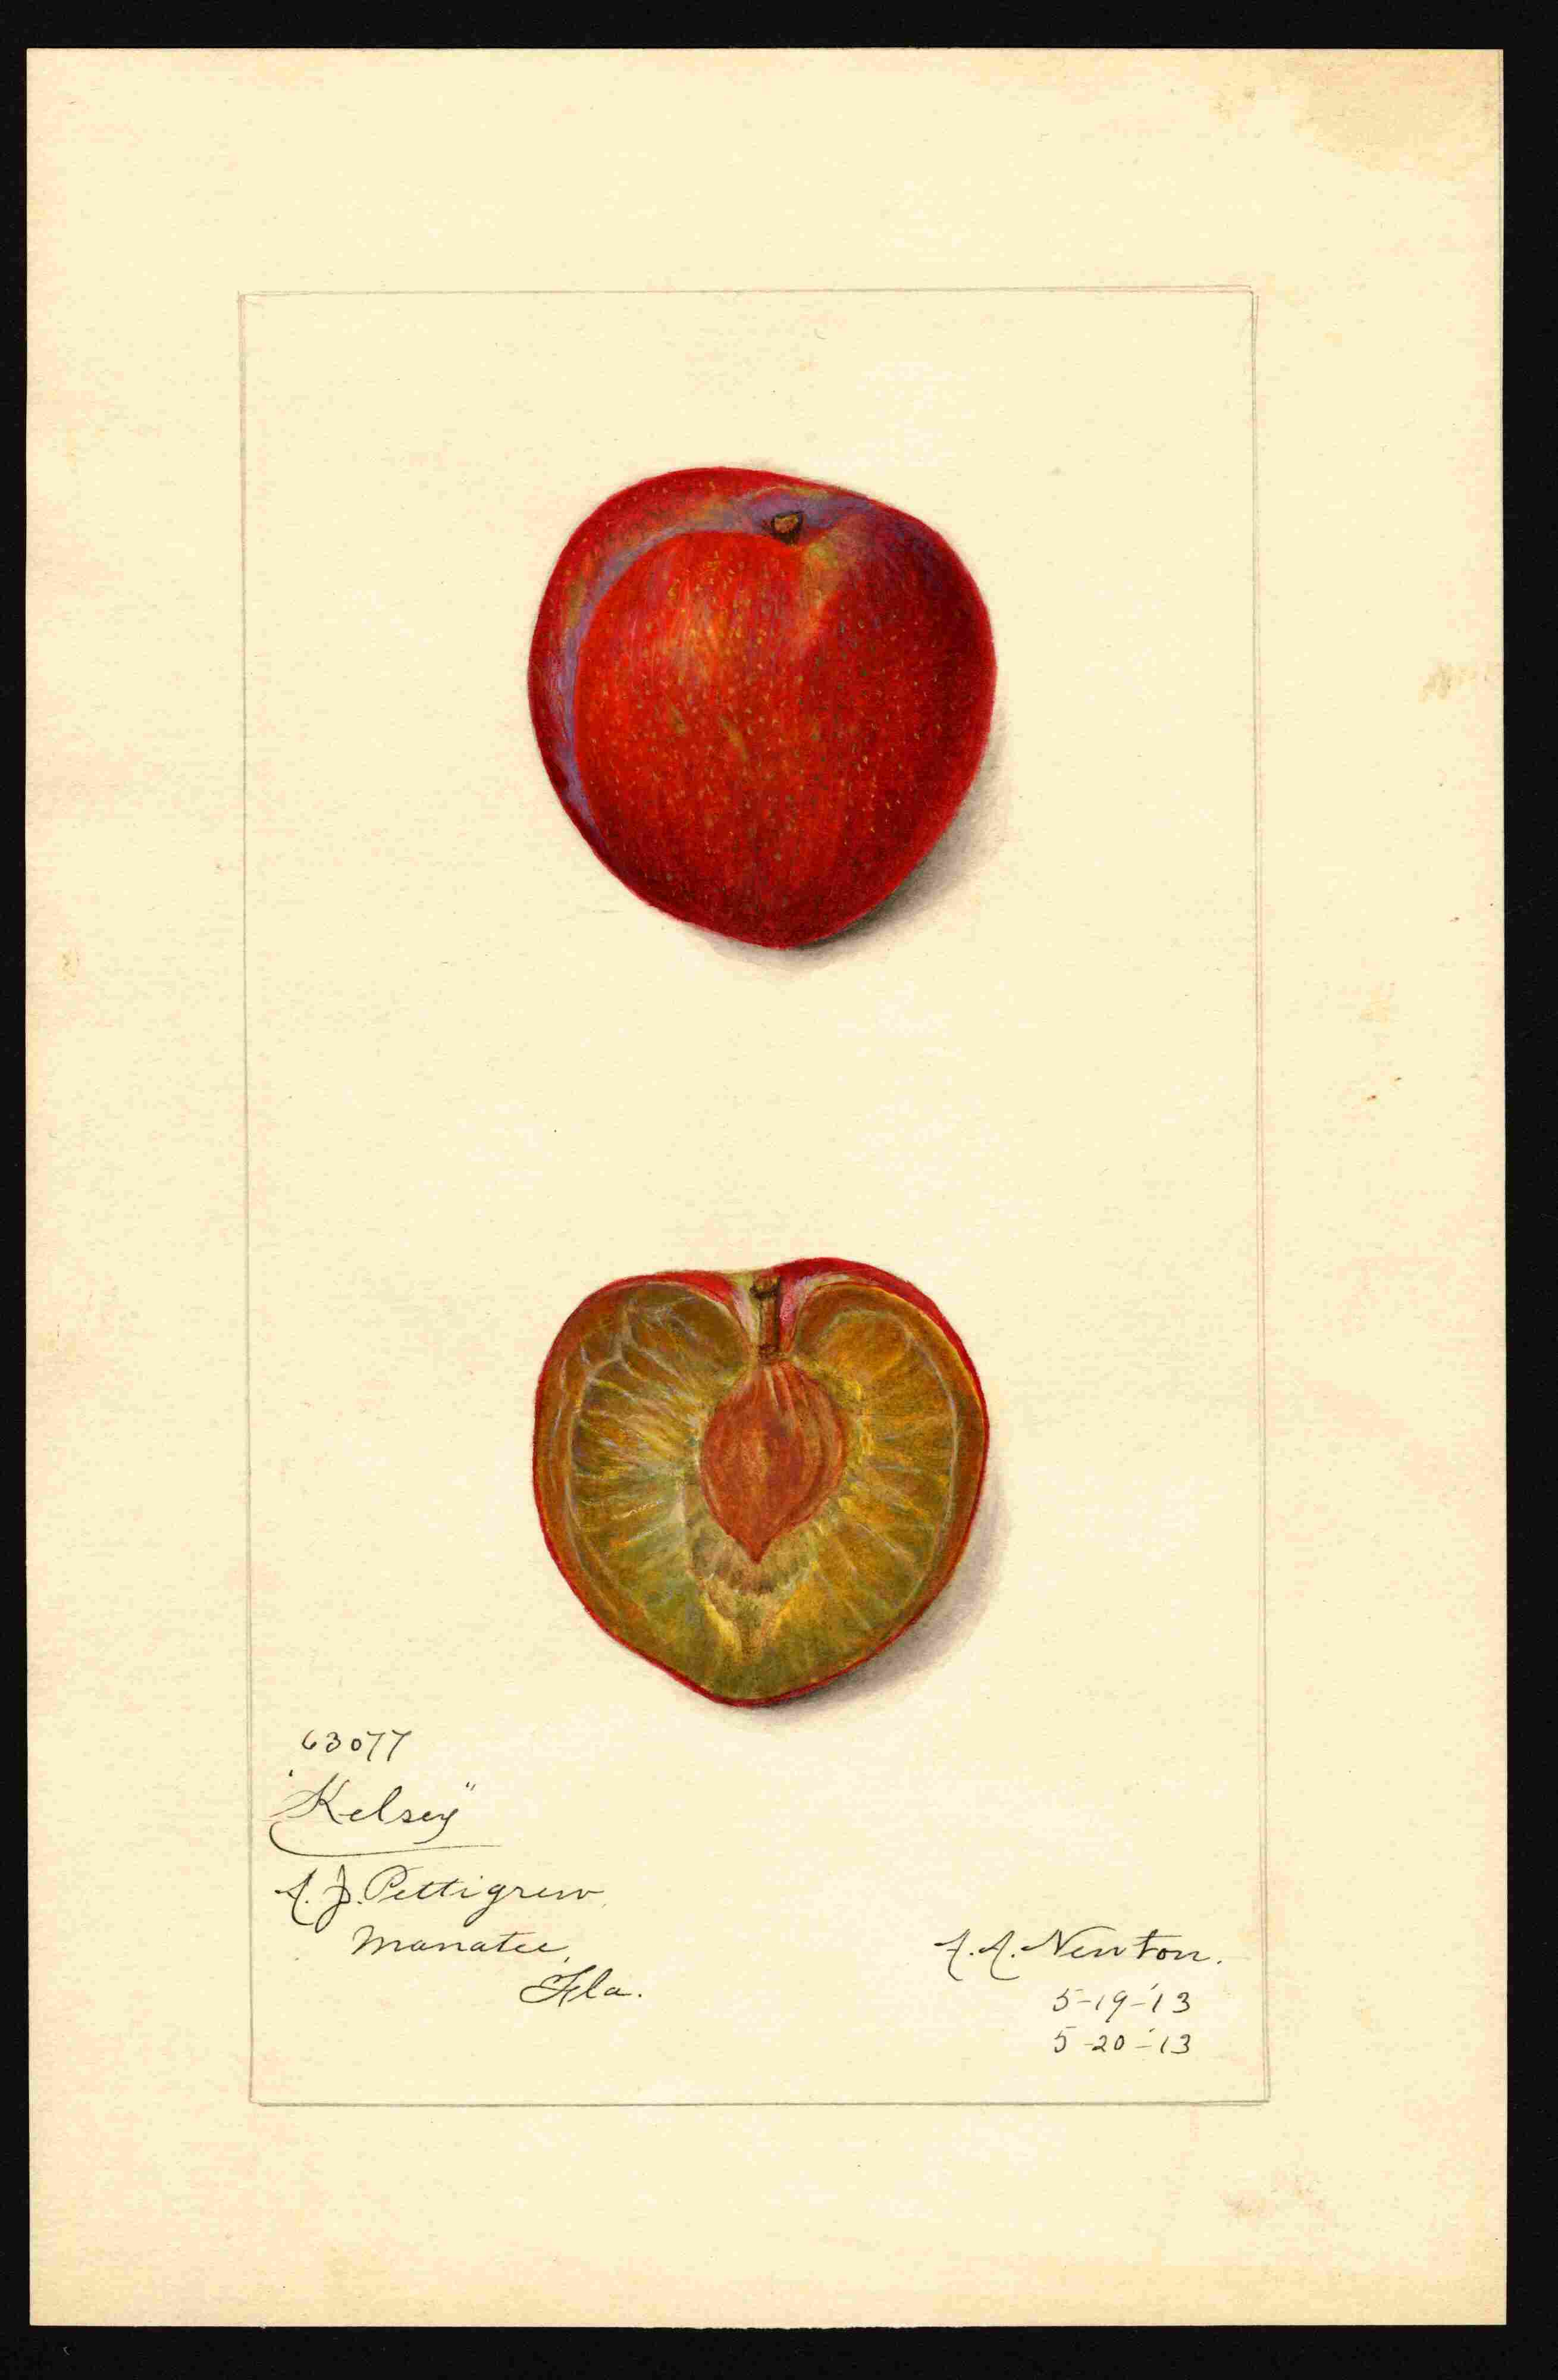 63077
"Kelsey"
A. J. Pettigrew,
Manatee,
Fla.
A.A. Newton.
5-19-'13
5-20-'13